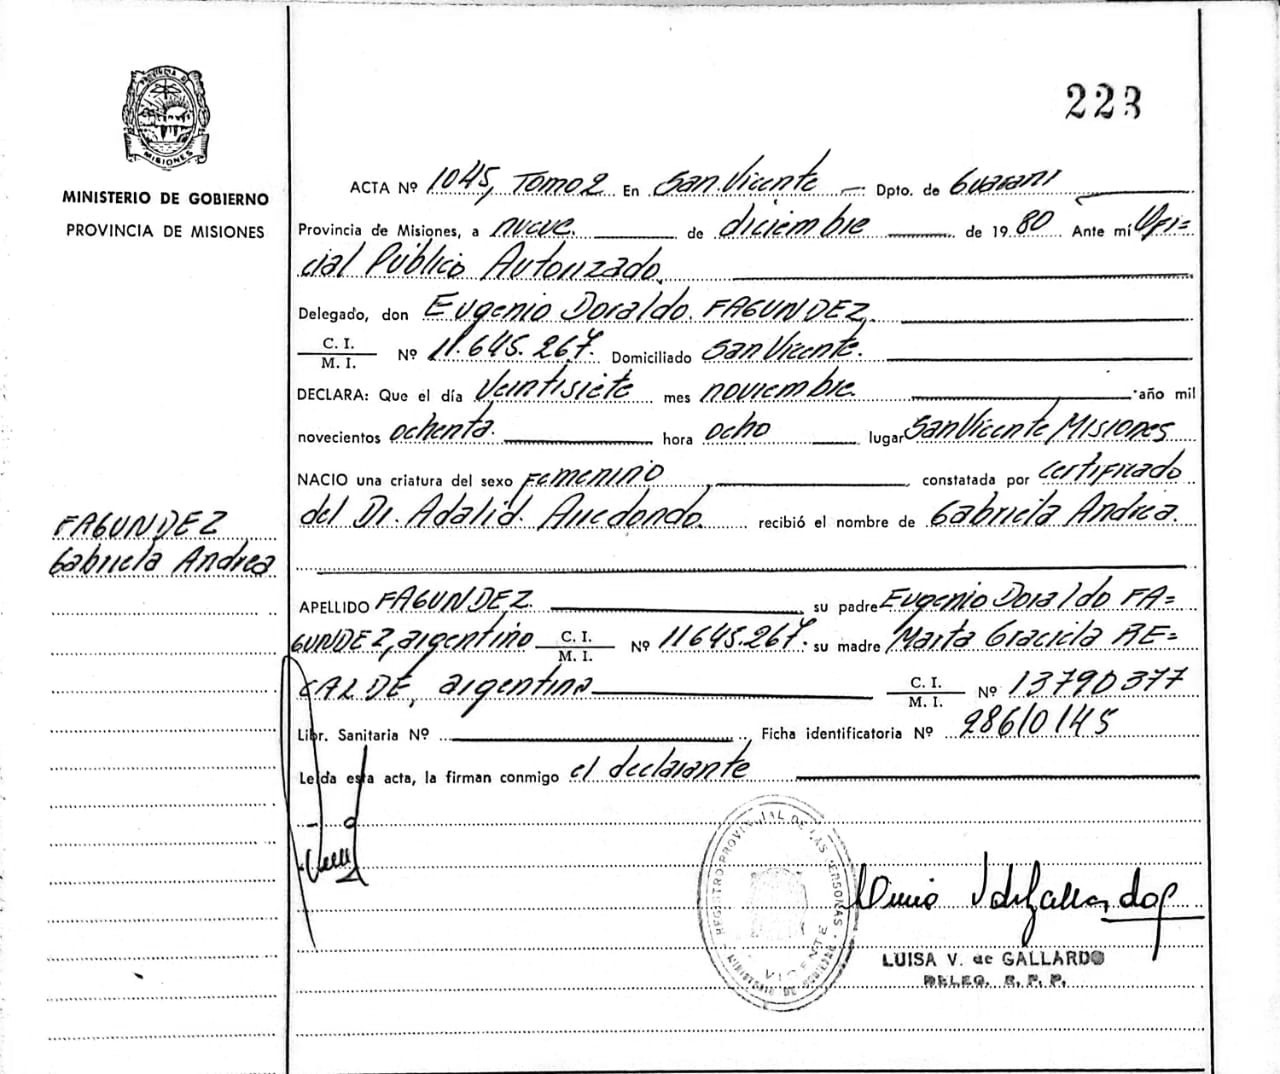 PROVINCIA DE
MISIONES
MINISTERIO DE GOBIERNO
PROVINCIA DE MISIONES
FAGUNDEZ
Gabriela Andrea
223
ACTA Nº 1045, Tomo 2 En San Vicente Dpto. de Guaraní
Provincia de Misiones, a nueve de diciembre de 1980 Ante mí Ofi=
cial Público Autorizado
Delegado, don Eugenio Doraldo FAGUNDEZ
C. I.
M. I. Nº 11.645.267. Domiciliado San Vicente.
DECLARA: Que el día Veintisiete mes noviembre año mil
novecientos ochenta hora ocho lugar San Vicente Misiones
NACIO una criatura del sexo Femenino, constatada por certificado
del Dr. Adalid Arredondo recibió el nombre de Gabriela Andrea.
APELLIDO FAGUNDEZ su padre Eugenio Doraldo FA=
GUNDEZ, argentino C. I. M. I. Nº 11645.267. su madre Marta Graciela RE=
CALDE, argentina C. I. M. I. Nº 13790377
Libr. Sanitaria Nº Ficha identificatoria Nº 28610145
Leída esta acta, la firman conmigo el declarante
REGISTRO PROVINCIAL DE LAS PERSONAS
MINISTERIO DE GOBIERNO
VICENTE
LUISA V. de GALLARDO
DELEG. R. P. P.